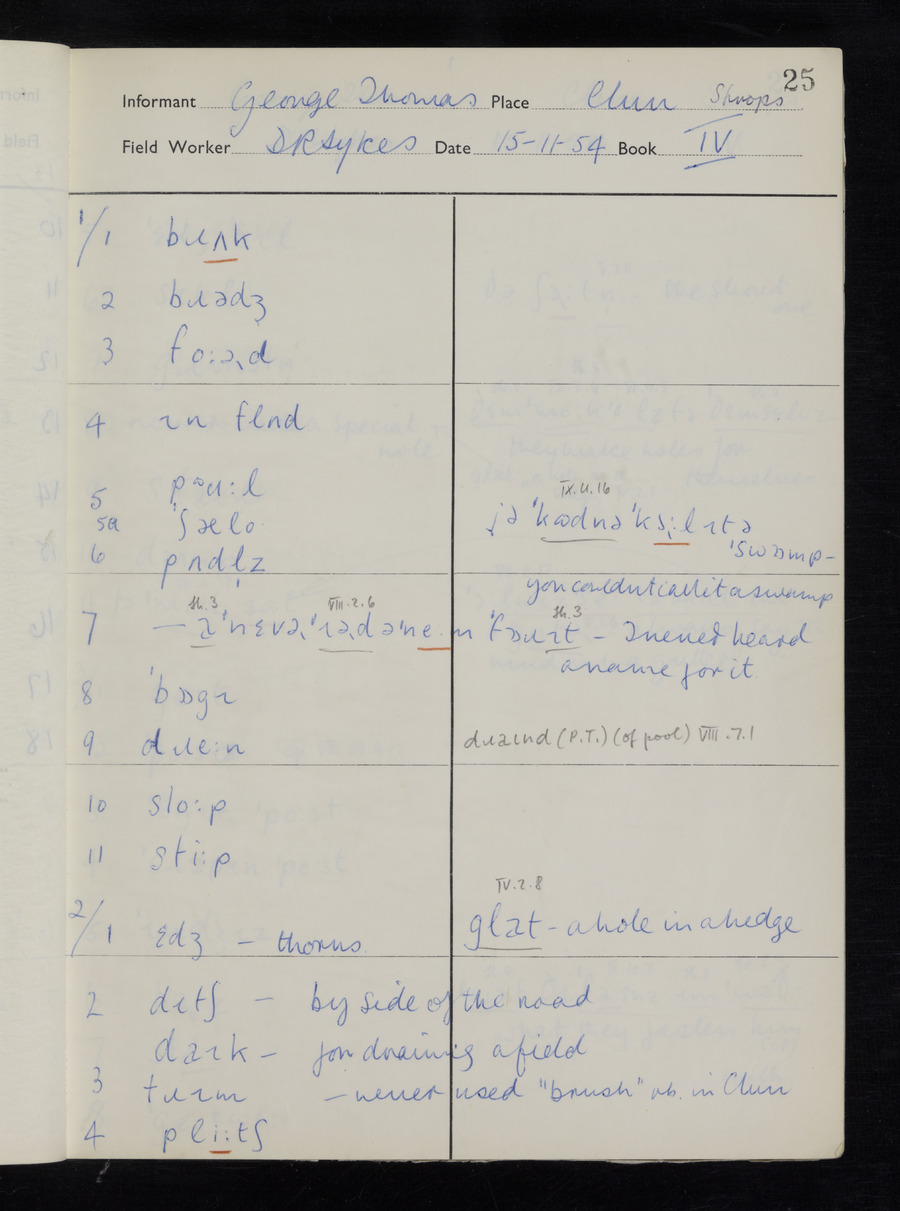 25
Informant George Thomas Place Clun Shrops
Field Worker DRSykes Date 15-11-54 Book IV
1/1 bɹʌk
2 bɹədʒ
3 fo:ə˞d
4 ɪn flʊd
5 pᵊu:l
5a ˈʃælo
IX.4.16
jə ˈkʊdnə ˈkɔ:l ɪt ə
6 pʌdlz
ˈswɒmp –
you couldnt call it a swamp
sh.3 VIII.2.6 sh.3
7 – I never heard
a name for it
8 ˈbɒgɪ
9 dɹe:n dɹaɪnd (P.T.) (of pool) VIII.7.1
10 slo:p
11 sti:p
IV.2.8
2/1 ɛdʒ – thorns. glat – a hole in a hedge
2 dɪtʃ – by side of the road
daɪk – for draining a field
3 tɹɪm – never used "brush" vb. in Clun
4 pli:tʃ